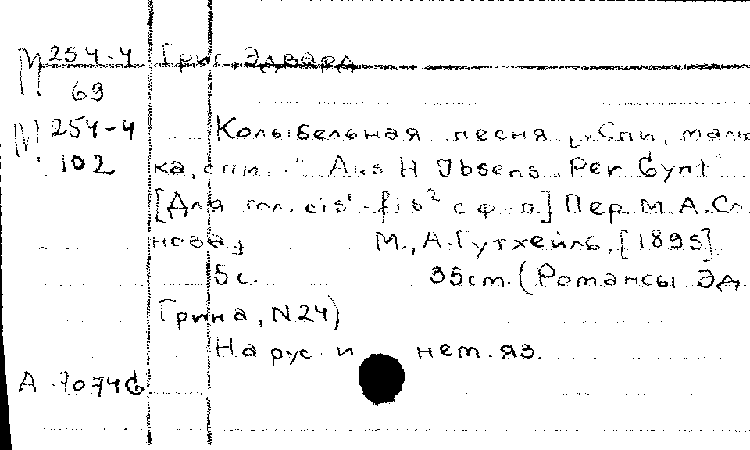 М 254-4 Григ, Эдвард
69
М 254-4 Колыбельная песня „Спи, малю
102 ка, спи..." Aus H Ibsens „Per Gynt"
[Для гол. cis¹-fis² с ф-п] Пер М. А. Сл
нова, М., А. Гутхейль, [1895]
5 с. 35 cm. (Романсы Эд.
Грига, N24)
На рус. и нем. яз.
А